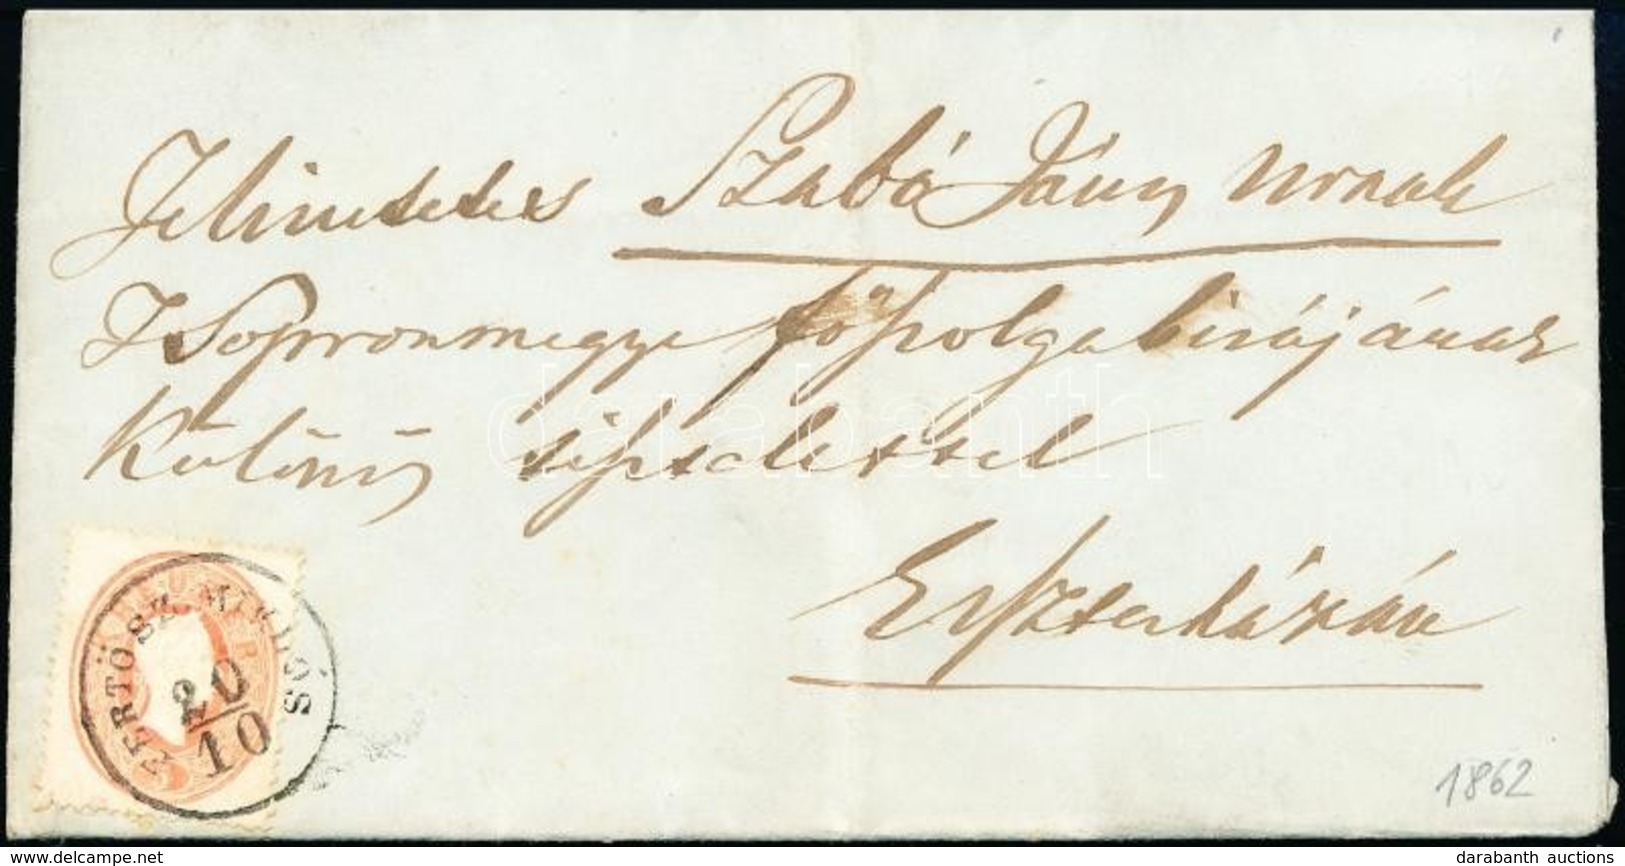 Tekintetes Szabó János urnak
T Sopronmegye főszolgabirájának
Külön tisztelettel
Eszterházán
ZERTÖ SZ. MIKLÓS
20
10
1862
darabanth
darabanth auctions